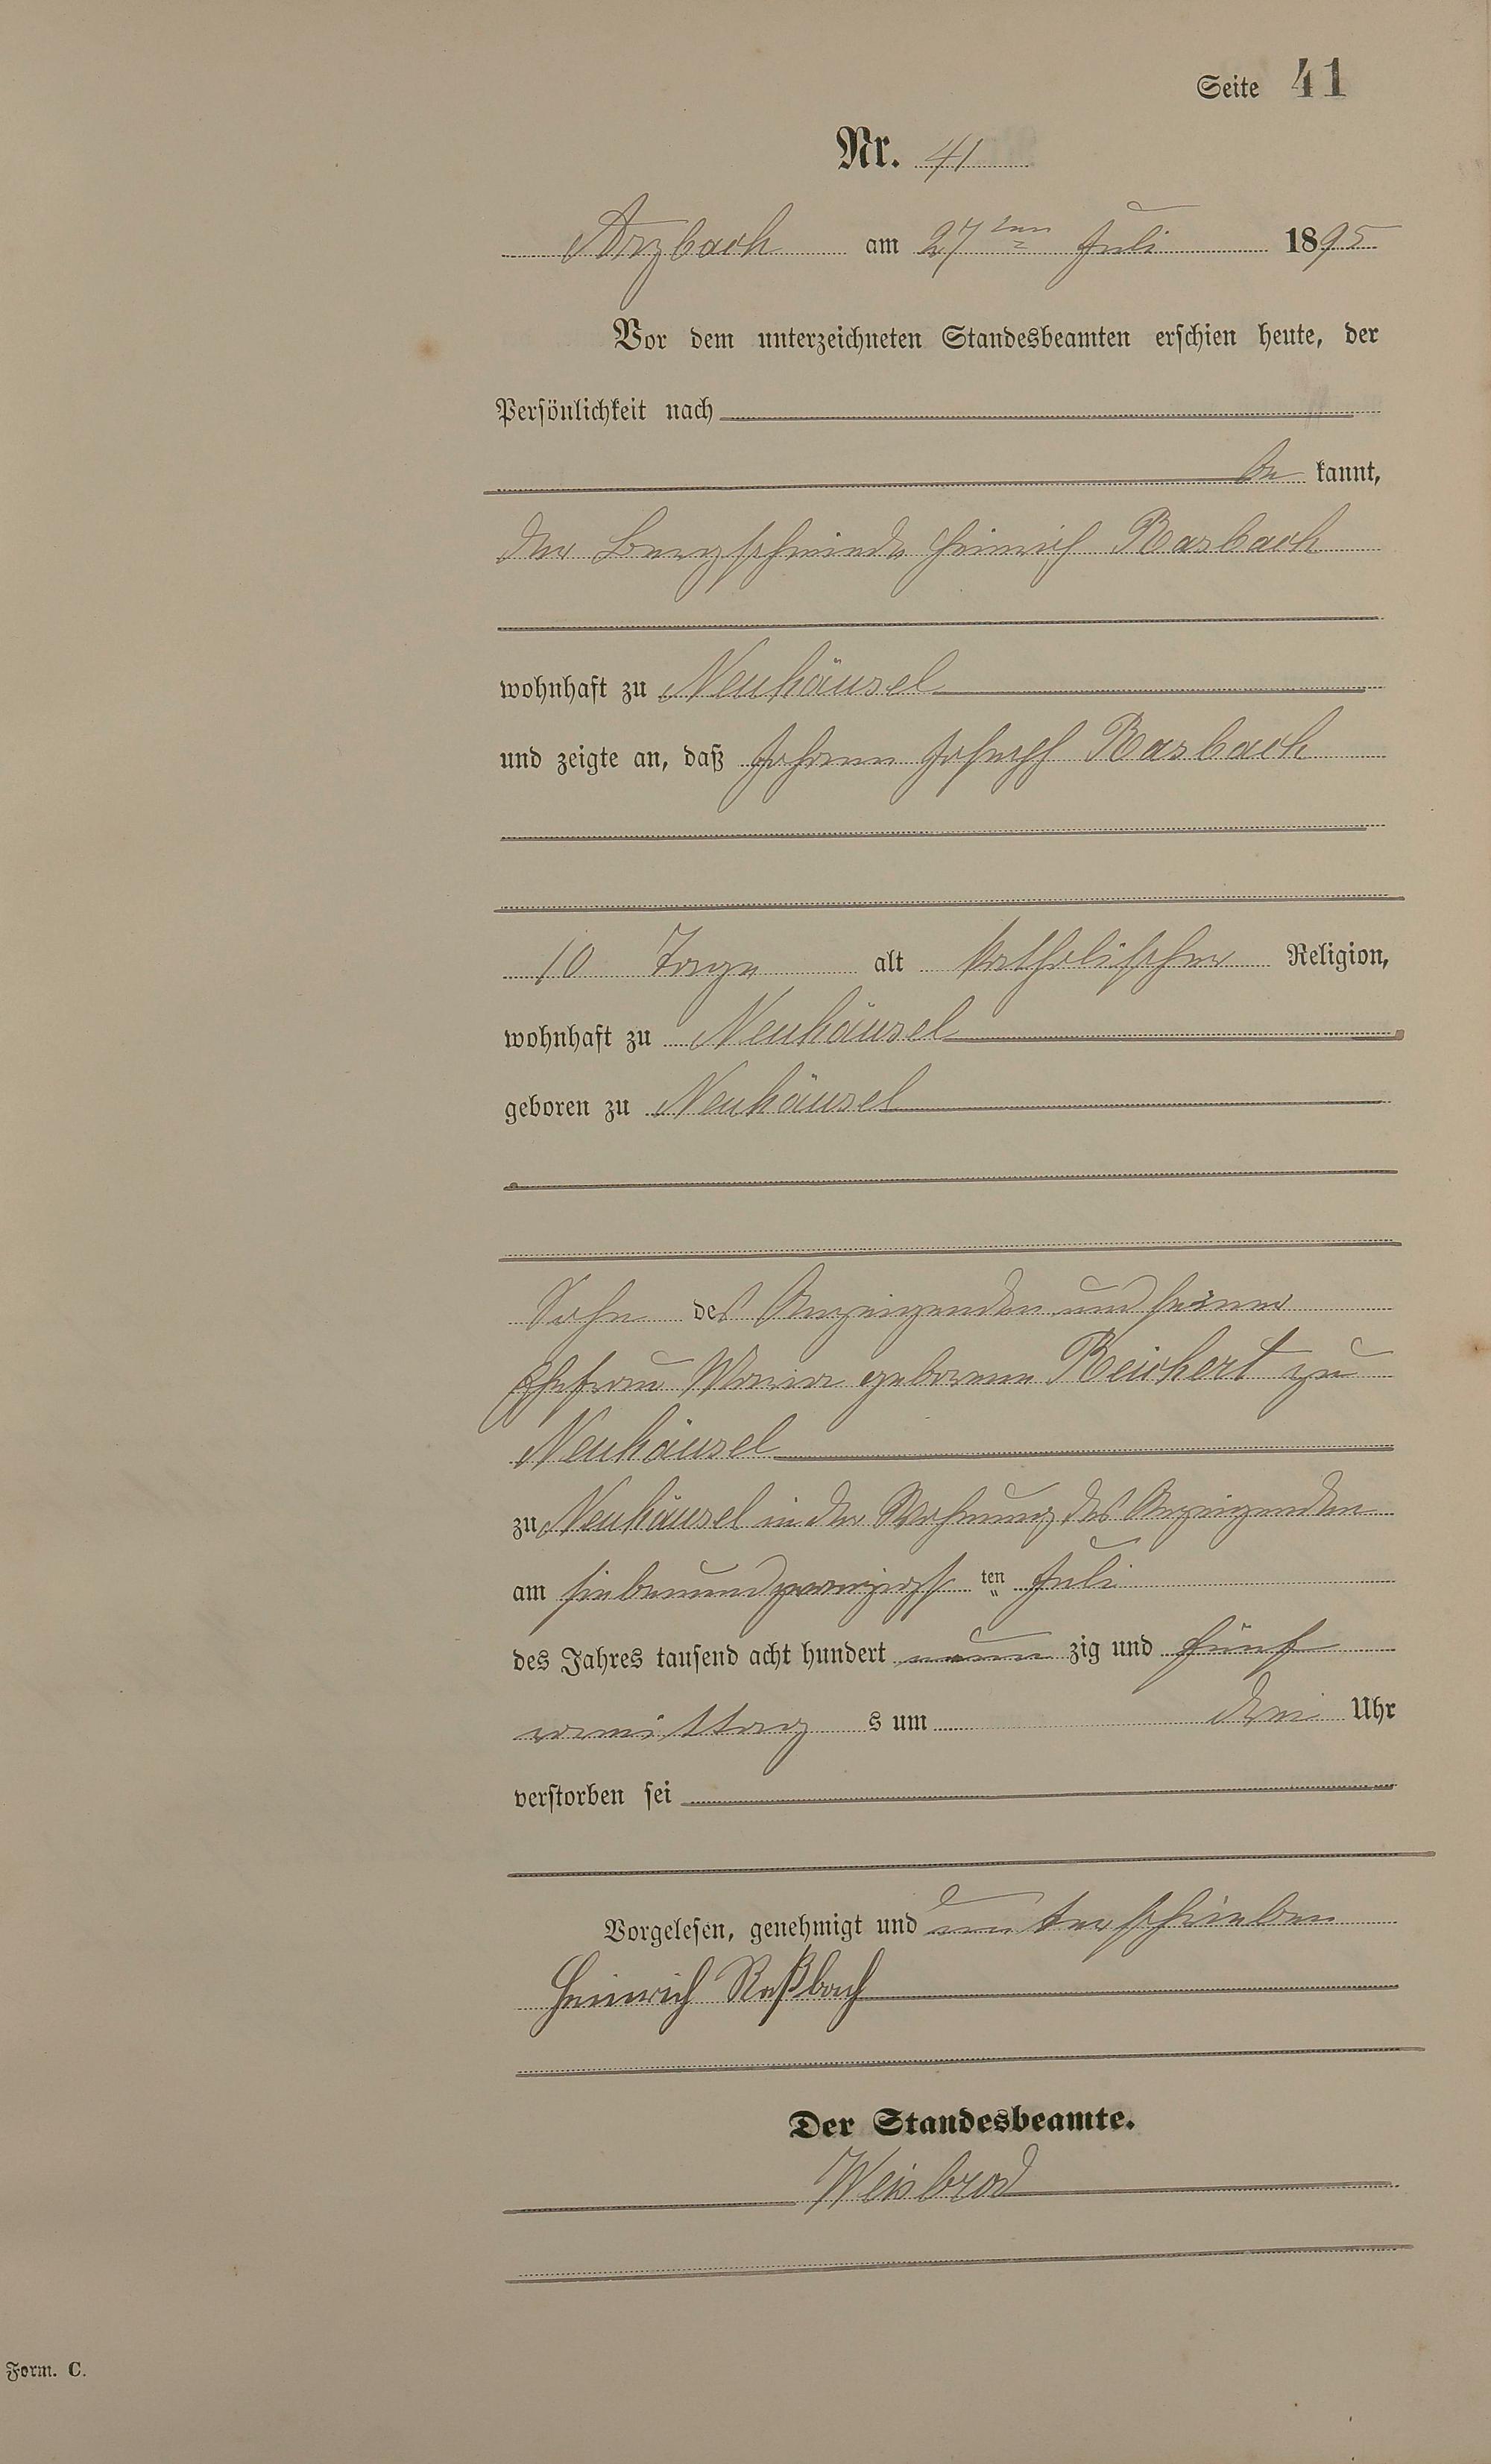 Seite 41
Nr. 41
Arzbach am 27ten Juli 1895
Vor dem unterzeichneten Standesbeamten erschien heute, der
Persönlichkeit nach
be kannt,
der Bergschmiede Heinrich Rasbach
wohnhaft zu Neuhäusel
und zeigte an, daß Johann Joseph Rasbach
10 Tage alt katholischer Religion,
wohnhaft zu Neuhäusel
geboren zu Neuhäusel
Sohn des Anzeigenden und seiner
Ehefrau Maria geborene Reichert zu
Neuhäusel
zu Neuhäusel in der Wohnung des Anzeigenden
am siebenundzwanzigsten Juli
des Jahres tausend acht hundert neun zig und fünf
vormittag s um drei Uhr
verstorben sei
Vorgelesen, genehmigt und unterschrieben
Heinrich Raßbach
Der Standesbeamte.
Weisbrod
Form. C.